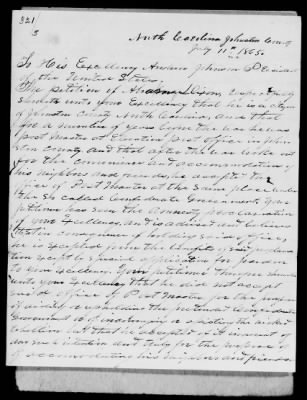 321
3
North Carolina Johnston County
July 11th 1865
To His Excellency Andrew Johnson President
of the United States.
The petition of Dixon, respectfully
sheweth unto your Excellency that he is a citizen
of Johnston County North Carolina and that
for a number of years before the war he was
Post Master at Post office in John
ston County and that after the war broke out
for the convenience and accommodation of
his neighbors and friends, he accepted the
office of Post Master at the same place under
the So called Confederate Government. Your
petitioner has seen the Amnesty proclamation
of your Excellency and is advised and believes
that in consequence of holding said office
he is excepted from the benefits of said proclama
tion except by special application for pardon
to your Excellency. Your petitioner further sheweth
unto your Excellency that he did not accept
said office of Post Master for the purpose
of upholding the pretended Confederate
Government or of
Rebellion but that he accepted it
intention and only for the purpose
of accommodating his neighbors and friends